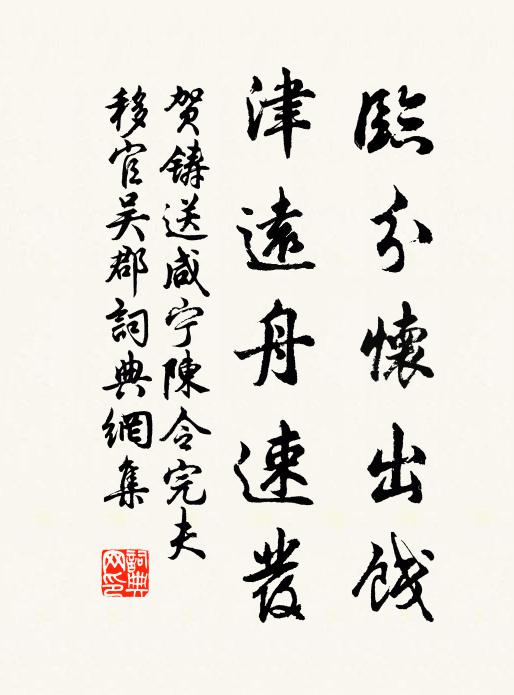 臨分懷出餞
津遠舟速發
贺鑄送咸宁陳令完夫
移官吴郡詞典網集
詞典网印